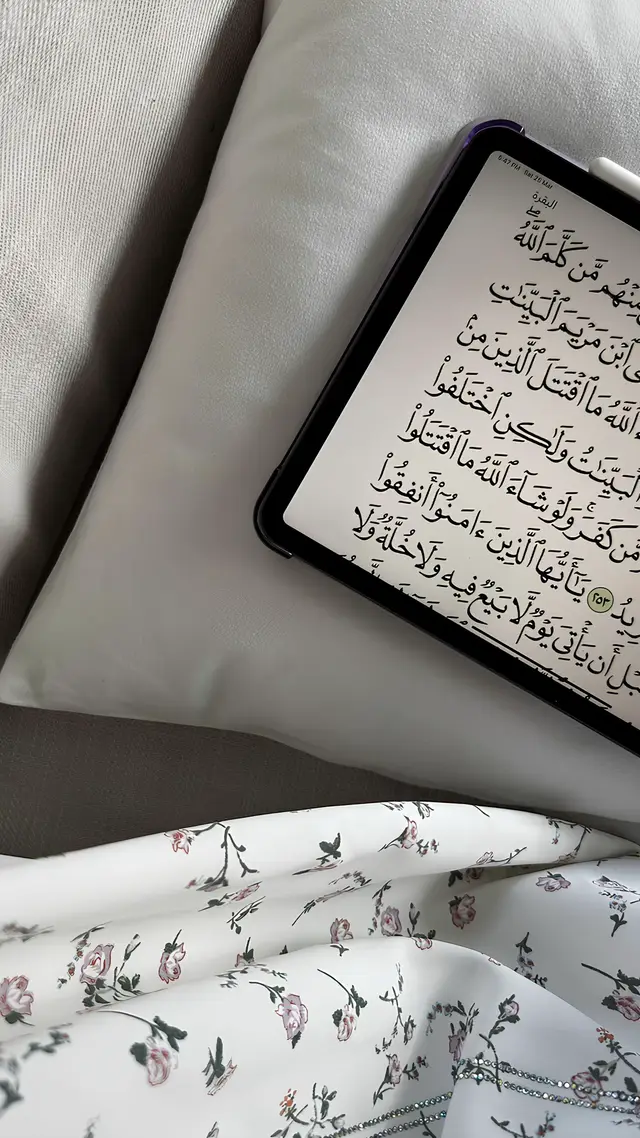 5:47 PM Sat Mar
البقرة
مِنْهُم مَّن كَلَّمَ ٱللَّهُ ۖ
ٱبْنَ مَرْيَمَ ٱلْبَيِّنَٰتِ
ٱللَّهُ مَا ٱقْتَتَلَ ٱلَّذِينَ مِنۢ
ٱلْبَيِّنَٰتُ وَلَٰكِنِ ٱخْتَلَفُوا۟
مَّن كَفَرَ ۚ وَلَوْ شَآءَ ٱللَّهُ مَا ٱقْتَتَلُوا۟
يدُ ٢٥٣ يَٰٓأَيُّهَا ٱلَّذِينَ ءَامَنُوٓا۟ أَنفِقُوا۟
بْلِ أَن يَأْتِىَ يَوْمٌ لَّا بَيْعٌ فِيهِ وَلَا خُلَّةٌ وَلَا